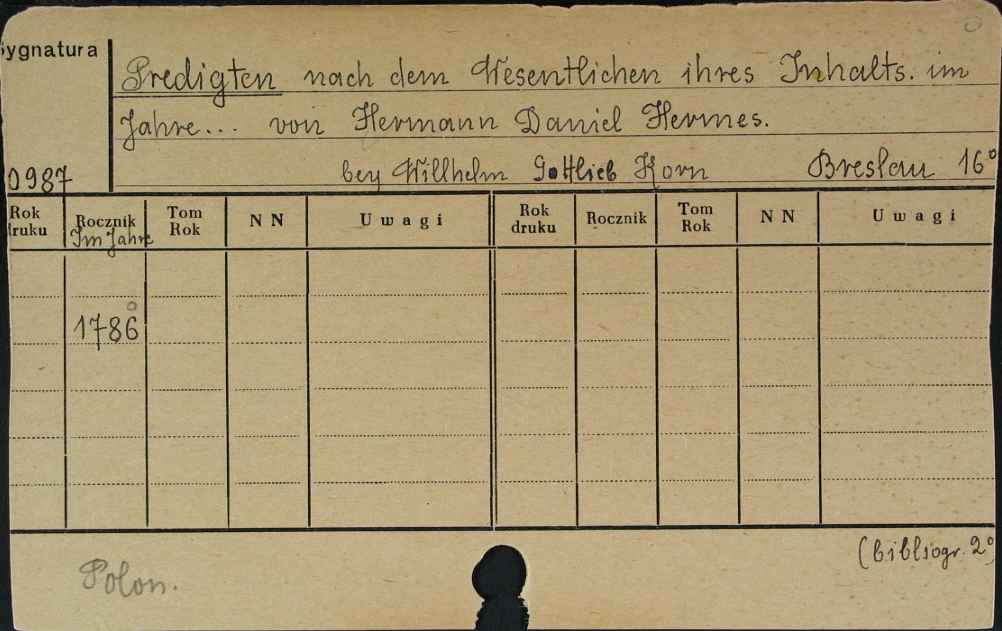 Sygnatura
Predigten nach dem Wesentlichen ihres Inhalts. im
Jahre... von Hermann Daniel Hermes.
0987 bey Willhelm Gottlieb Korn Breslau 16°
Rok druku Rocznik Im Jahre Tom Rok NN Uwagi Rok druku Rocznik Tom Rok NN Uwagi
1786
(bibliogr. 2°
Polon.